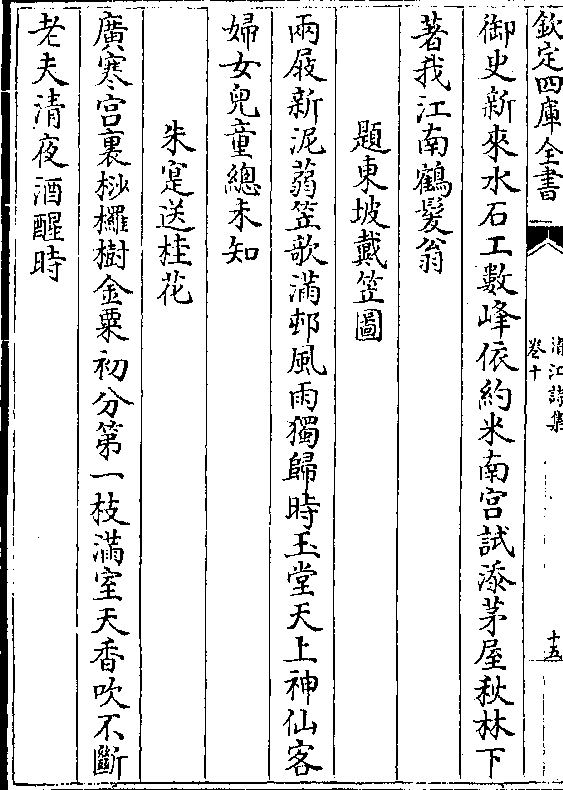 欽定四庫全書
清江詩集
卷十
十五
御史新來水石工數峰依約米南宫試添茅屋秋林下
著我江南鶴髮翁
題東坡戴笠圖
兩屐新泥蒻笠欹滿邨風雨獨歸時玉堂天上神仙客
婦女兒童總未知
朱寔送桂花
廣寒宫裏桫欏樹金粟初分第一枝滿室天香吹不斷
老夫清夜酒醒時